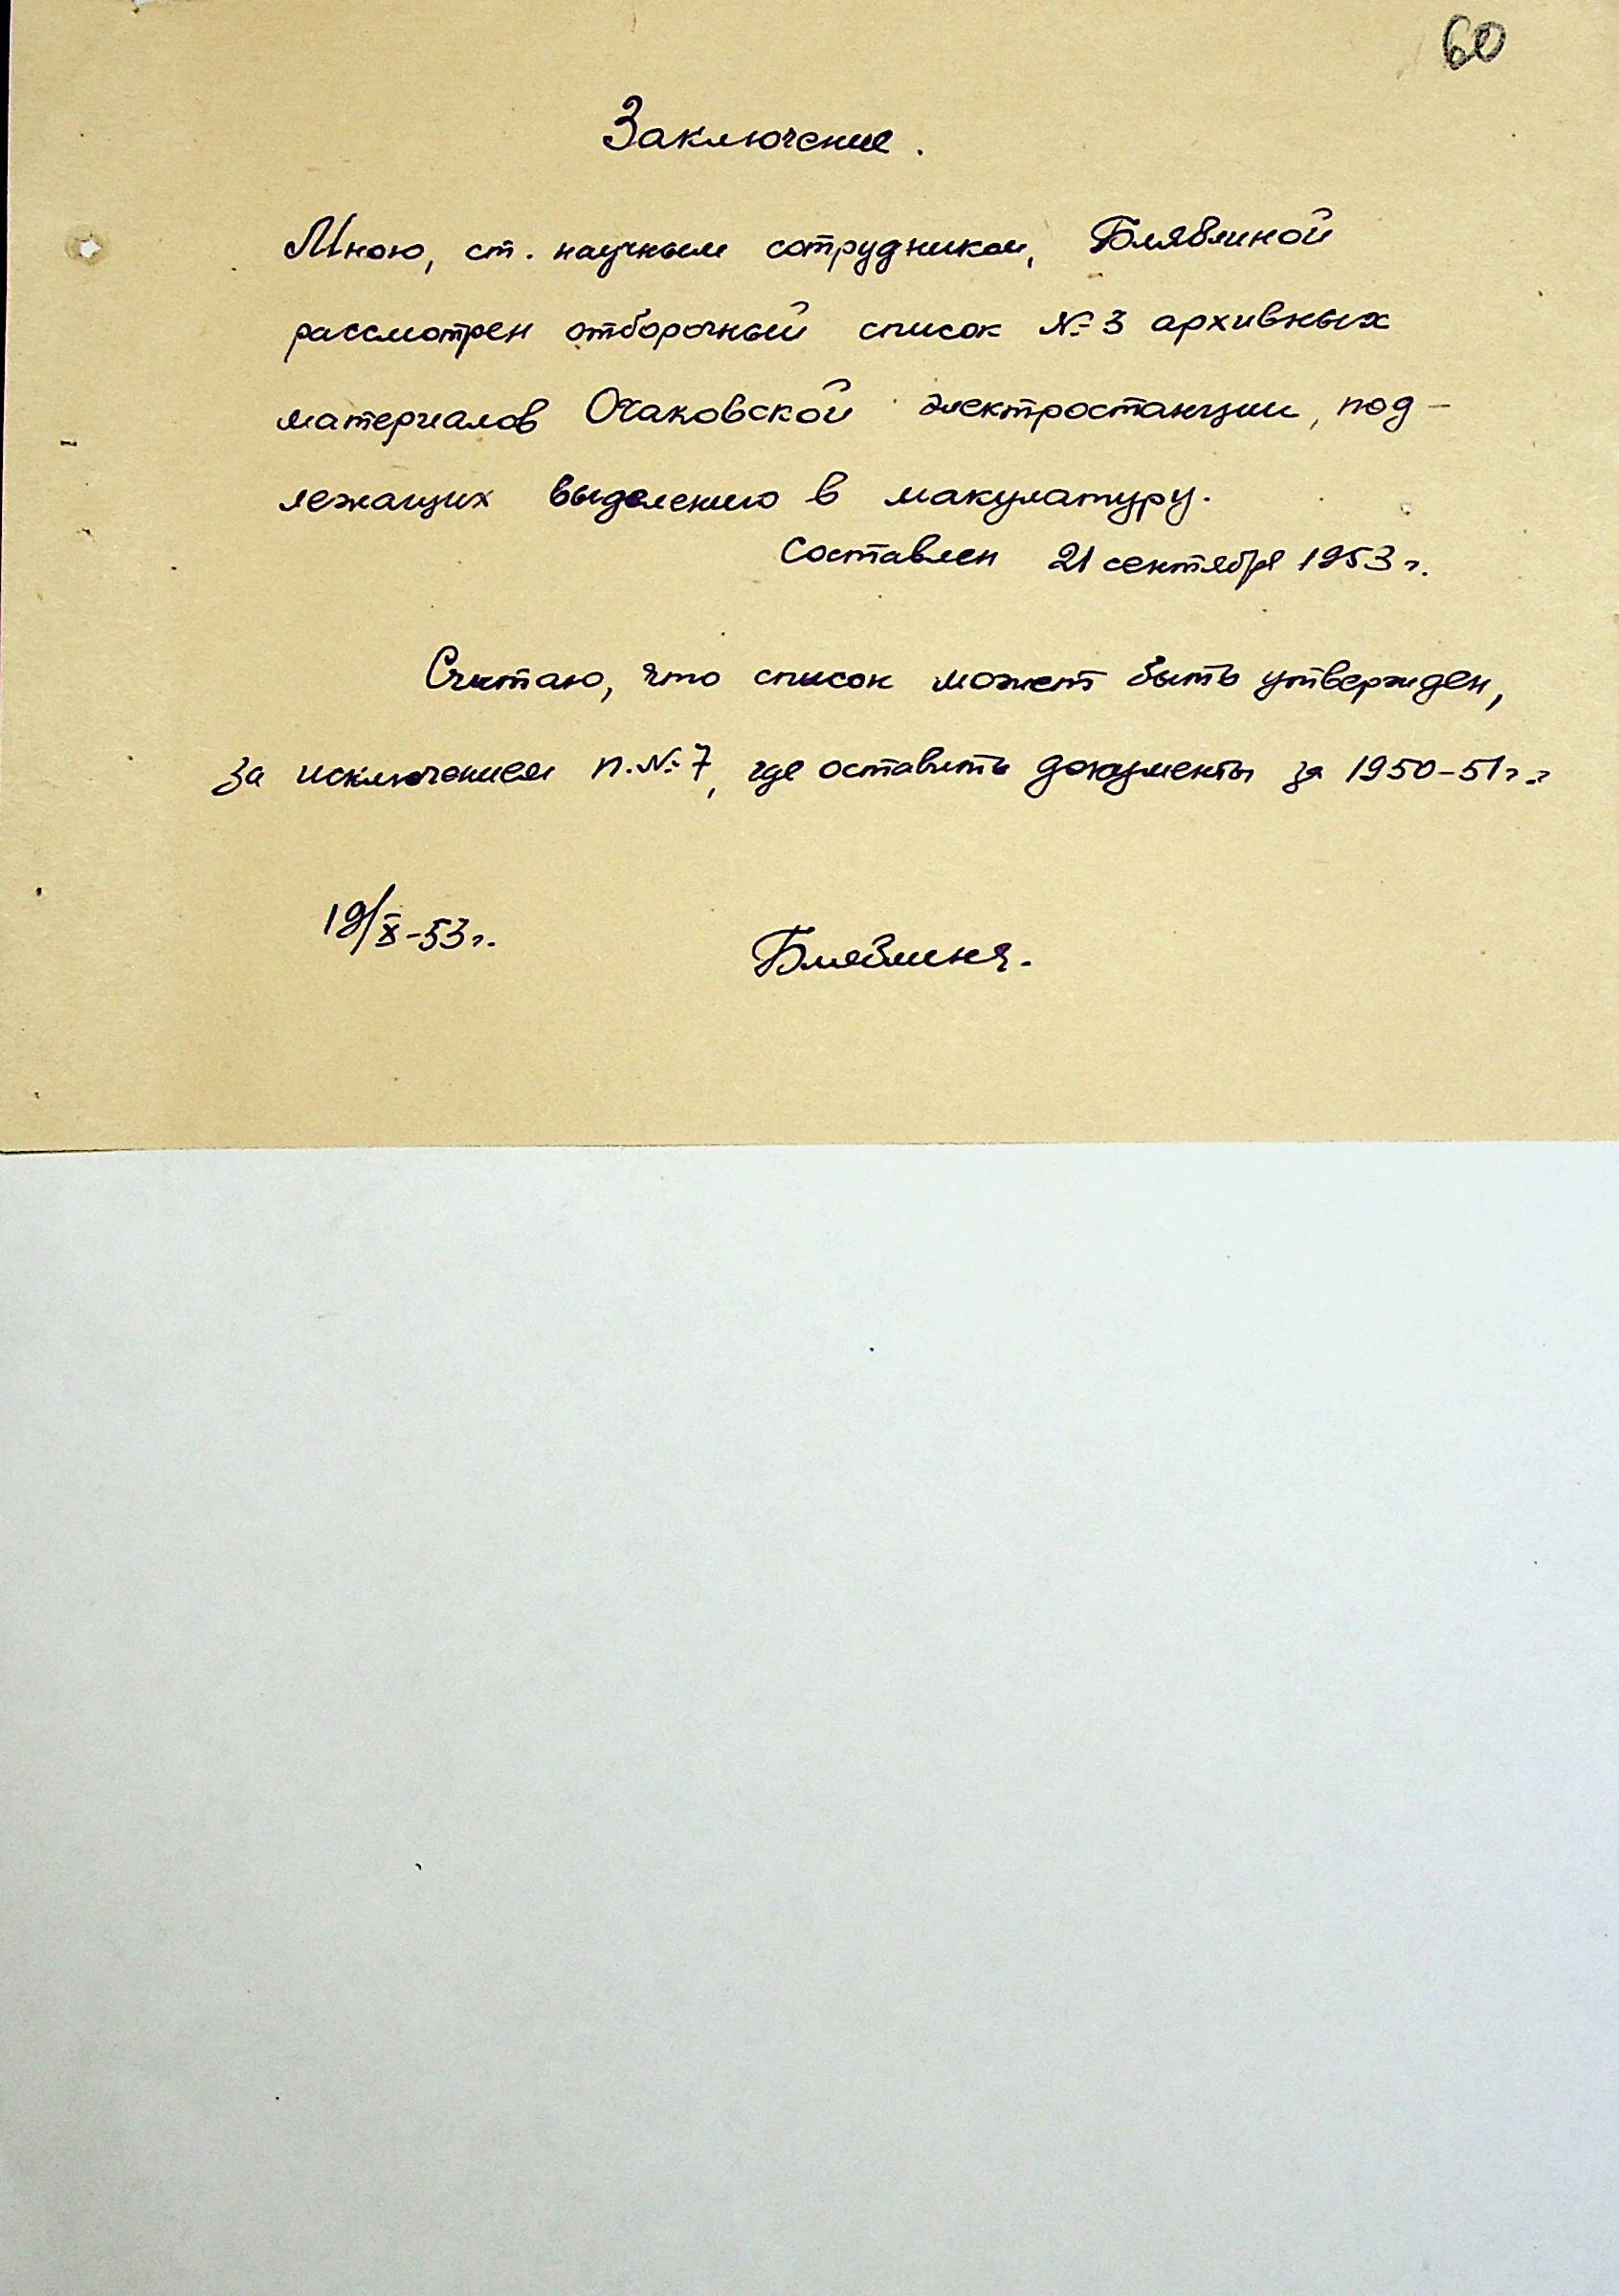 60
Заключение.
Мною, ст. научным сотрудником, Блявлиной
рассмотрен отборочный список № 3 архивных
материалов Очаковской электростанции, под-
лежащих выделению в макулатуру.
Составлен 21 сентября 1953 г.
Считаю, что список может быть утвержден,
за исключением п. № 7, где оставить документы за 1950-51 г.г
19/X-53 г.
Блявлина.